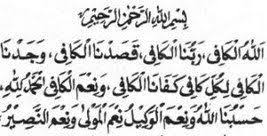 بِسْمِ اللهِ الرَّحْمٰنِ الرَّحِيْمِ
اَللهُ الْكَافِي، رَبُّنَا الْكَافِي، قَصَدْنَا الْكَافِي، وَجَدْنَا
الْكَافِي، لِكُلٍّ كَافِي، كَفَانَا الْكَافِي، وَنِعْمَ الْكَافِي، اَلْحَمْدُ لِلّٰهِ،
حَسْبُنَا اللهُ وَنِعْمَ الْوَكِيْلُ نِعْمَ الْمَوْلَى وَنِعْمَ النَّصِيْرُ